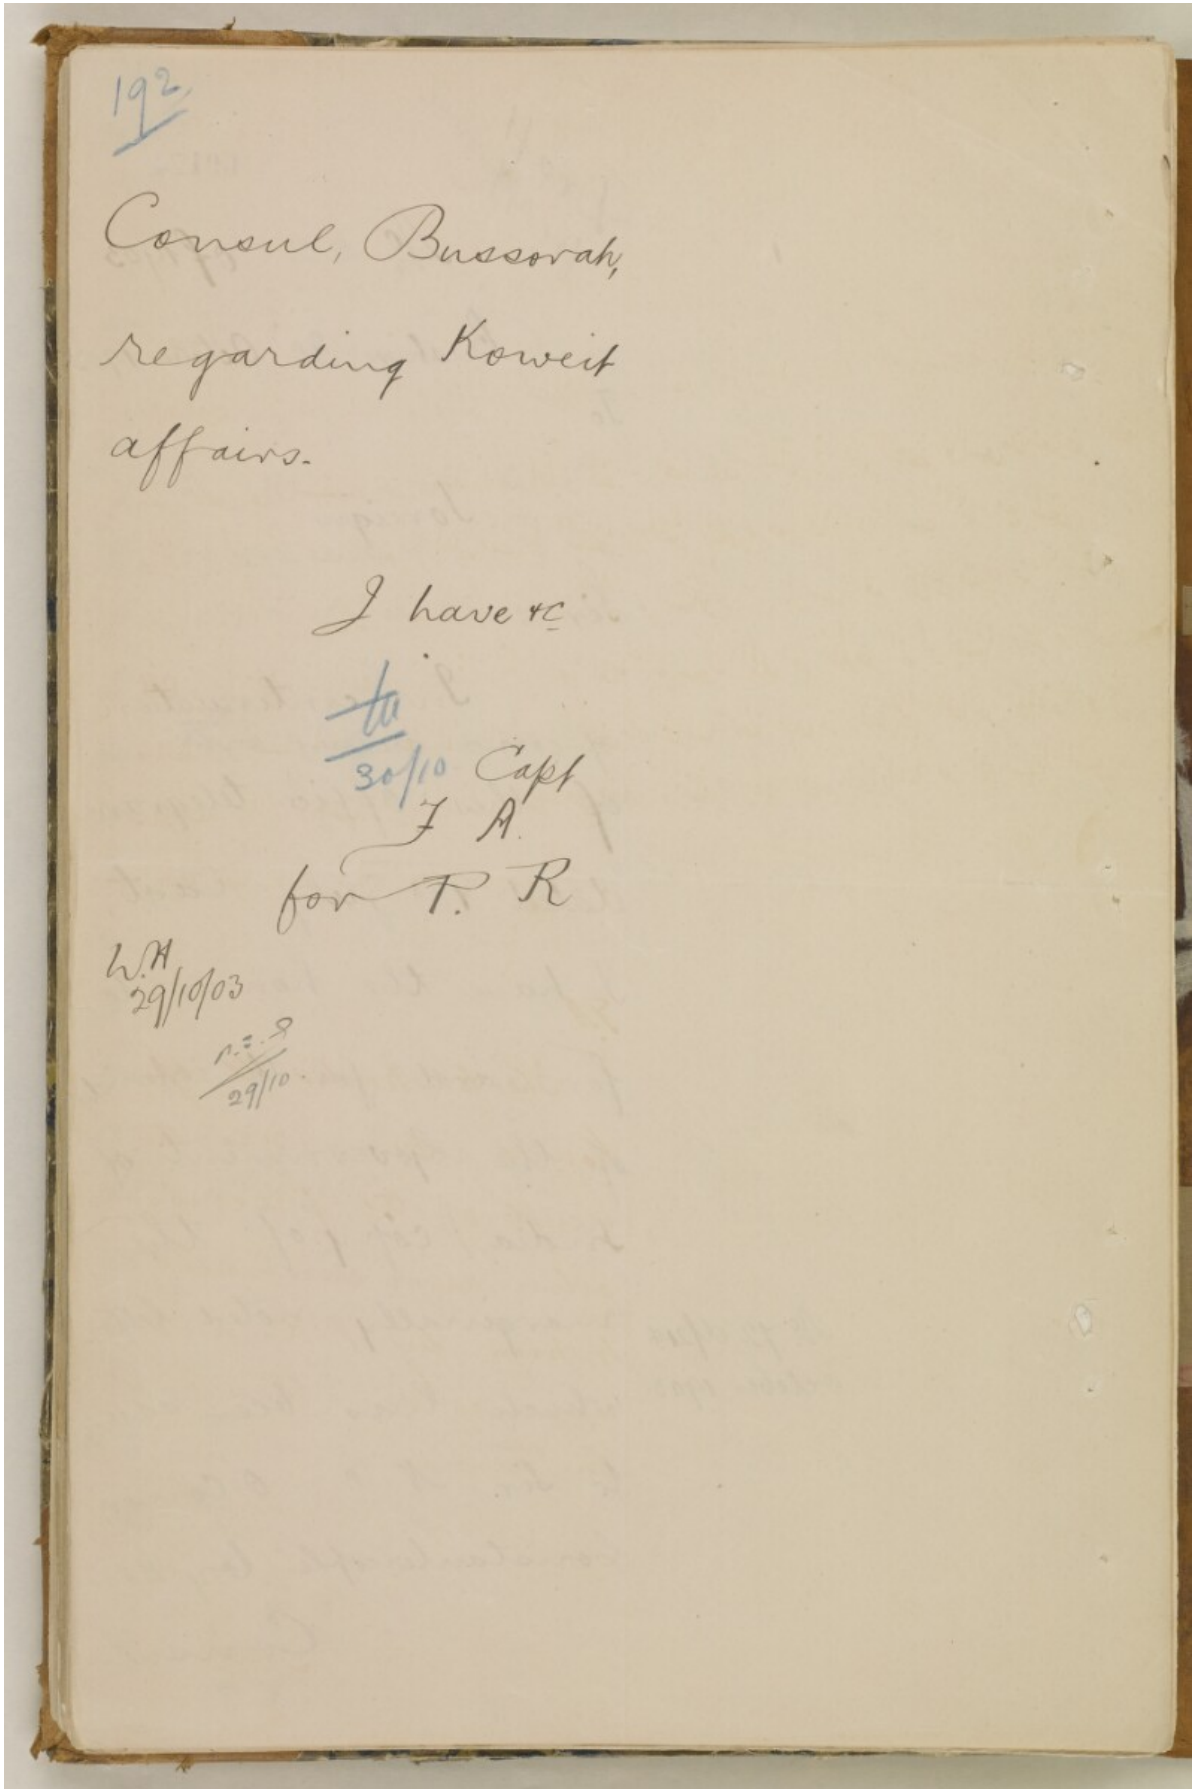 192
Consul, Bussorah,
regarding Koweit
affairs.
I have &c
30/10 Capt
F A.
for P. R
W.H
29/10/03
29/10.